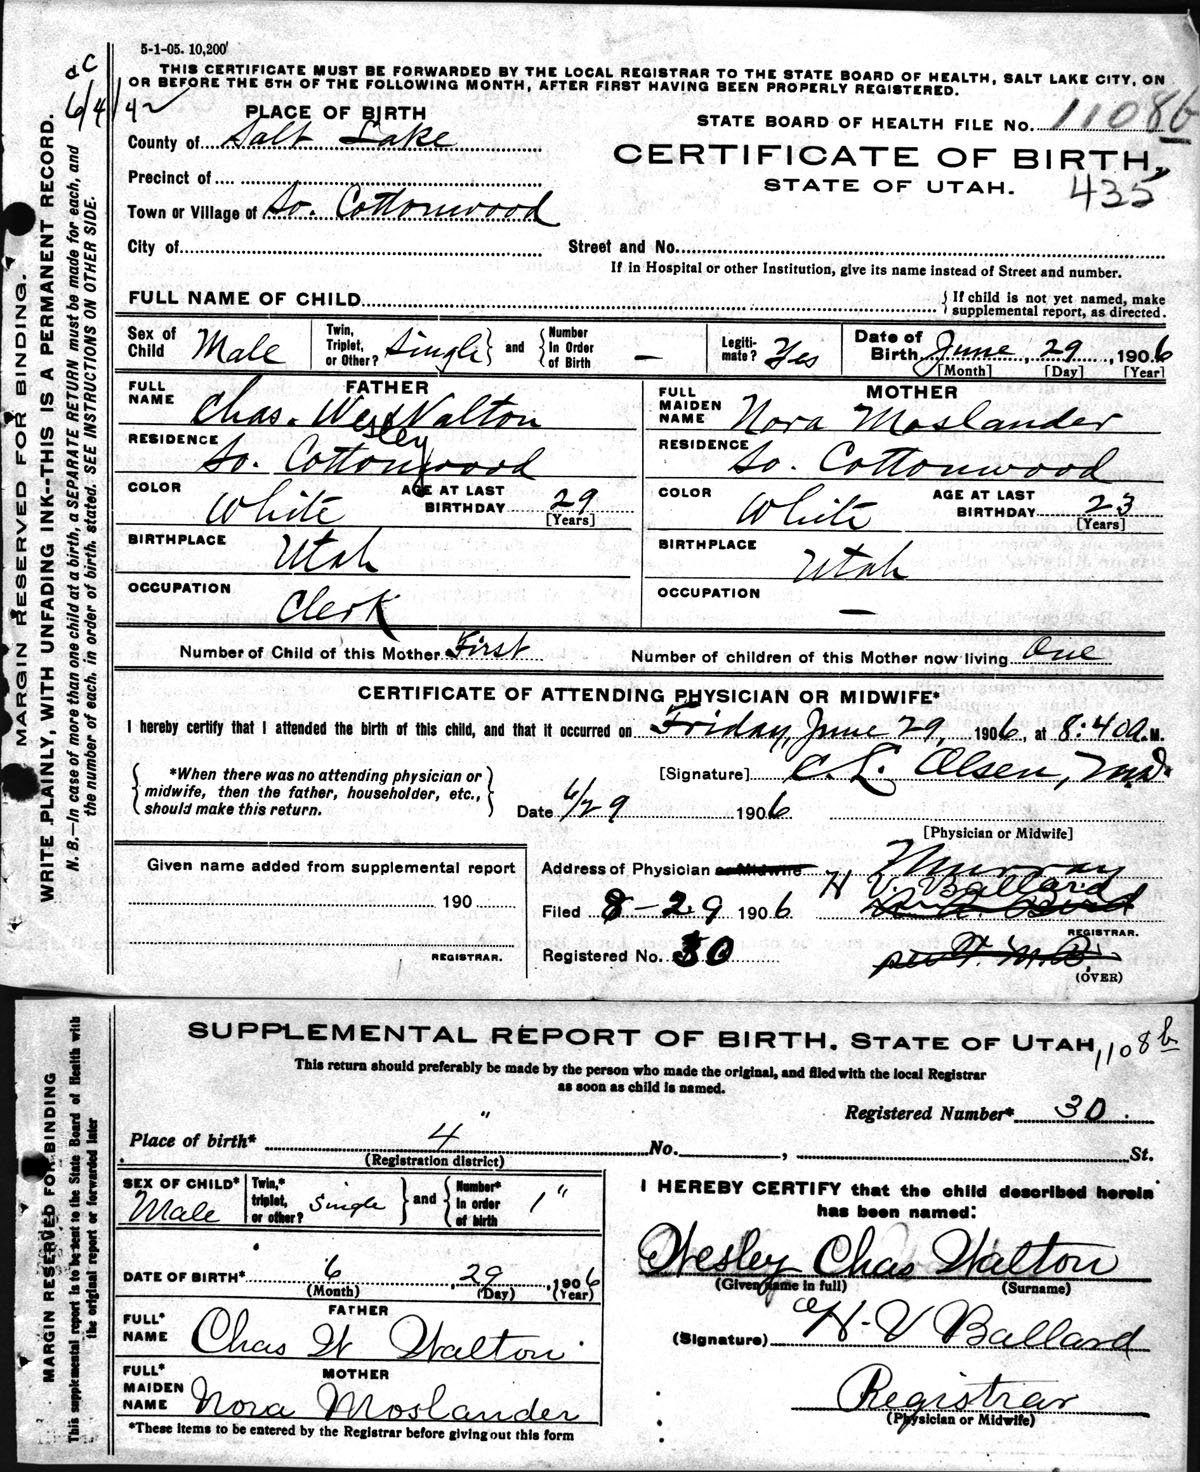 5-1-05. 10,200
THIS CERTIFICATE MUST BE FORWARDED BY THE LOCAL REGISTRAR TO THE STATE BOARD OF HEALTH, SALT LAKE CITY, ON
OR BEFORE THE 5TH OF THE FOLLOWING MONTH, AFTER FIRST HAVING BEEN PROPERLY REGISTERED.
6/4/42
PLACE OF BIRTH
STATE BOARD OF HEALTH FILE No. 1108b
County of Salt Lake
CERTIFICATE OF BIRTH,
Precinct of
STATE OF UTAH. 435
Town or Village of So. Cottonwood
City of Street and No.
If in Hospital or other Institution, give its name instead of Street and number.
FULL NAME OF CHILD { If child is not yet named, make supplemental report, as directed.
Sex of Child Male Twin, Triplet, or Other? Single } and { Number In Order of Birth — Legitimate? Yes Date of Birth June, 29, 1906
[Month] [Day] [Year]
FATHER
FULL NAME Chas. Wesley Walton
RESIDENCE So. Cottonwood
COLOR White AGE AT LAST BIRTHDAY 29
[Years]
BIRTHPLACE Utah
OCCUPATION Clerk
MOTHER
FULL MAIDEN NAME Nora Moslander
RESIDENCE So. Cottonwood
COLOR White AGE AT LAST BIRTHDAY 23
[Years]
BIRTHPLACE Utah
OCCUPATION —
Number of Child of this Mother First Number of children of this Mother now living One
CERTIFICATE OF ATTENDING PHYSICIAN OR MIDWIFE*
I hereby certify that I attended the birth of this child, and that it occurred on Friday, June 29, 1906, at 8:40 A.M.
*When there was no attending physician or
midwife, then the father, householder, etc.,
should make this return.
[Signature] C. L. Olsen, M.D.
Date 6/29 1906
[Physician or Midwife]
Given name added from supplemental report
190
REGISTRAR.
Address of Physician or Midwife Murray
H V. Ballard
Filed 8-29 1906
REGISTRAR.
Registered No. 30
(OVER)
MARGIN RESERVED FOR BINDING.
WRITE PLAINLY, WITH UNFADING INK--THIS IS A PERMANENT RECORD.
N. B.—In case of more than one child at a birth, a SEPARATE RETURN must be made for each, and
the number of each, in order of birth, stated. SEE INSTRUCTIONS ON OTHER SIDE.
SUPPLEMENTAL REPORT OF BIRTH, STATE OF UTAH, 1108b
This return should preferably be made by the person who made the original, and filed with the local Registrar
as soon as child is named.
Registered Number* 30
Place of birth* 4" No. , St.
(Registration district)
SEX OF CHILD* Male Twin,* triplet, or other? Single } and { Number* In order of birth 1"
DATE OF BIRTH* 6 29, 1906
(Month) (Day) (Year)
FATHER
FULL* NAME Chas W Walton
MOTHER
FULL* MAIDEN NAME Nora Moslander
*These items to be entered by the Registrar before giving out this form
I HEREBY CERTIFY that the child described herein
has been named:
Wesley Chas Walton
(Given name in full) (Surname)
(Signature) H. V Ballard
Registrar
(Physician or Midwife)
MARGIN RESERVED FOR BINDING
This supplemental report is to be sent to the State Board of Health with
the original report or forwarded later